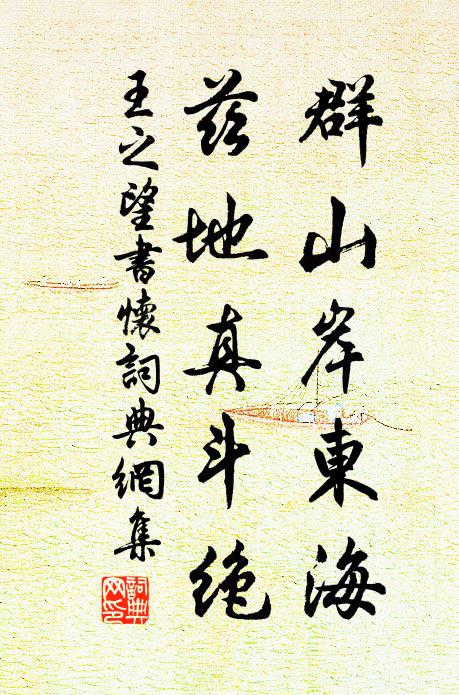 群山岸東海
茲地真斗絶
王之望書懷詞典網集
詞典網印